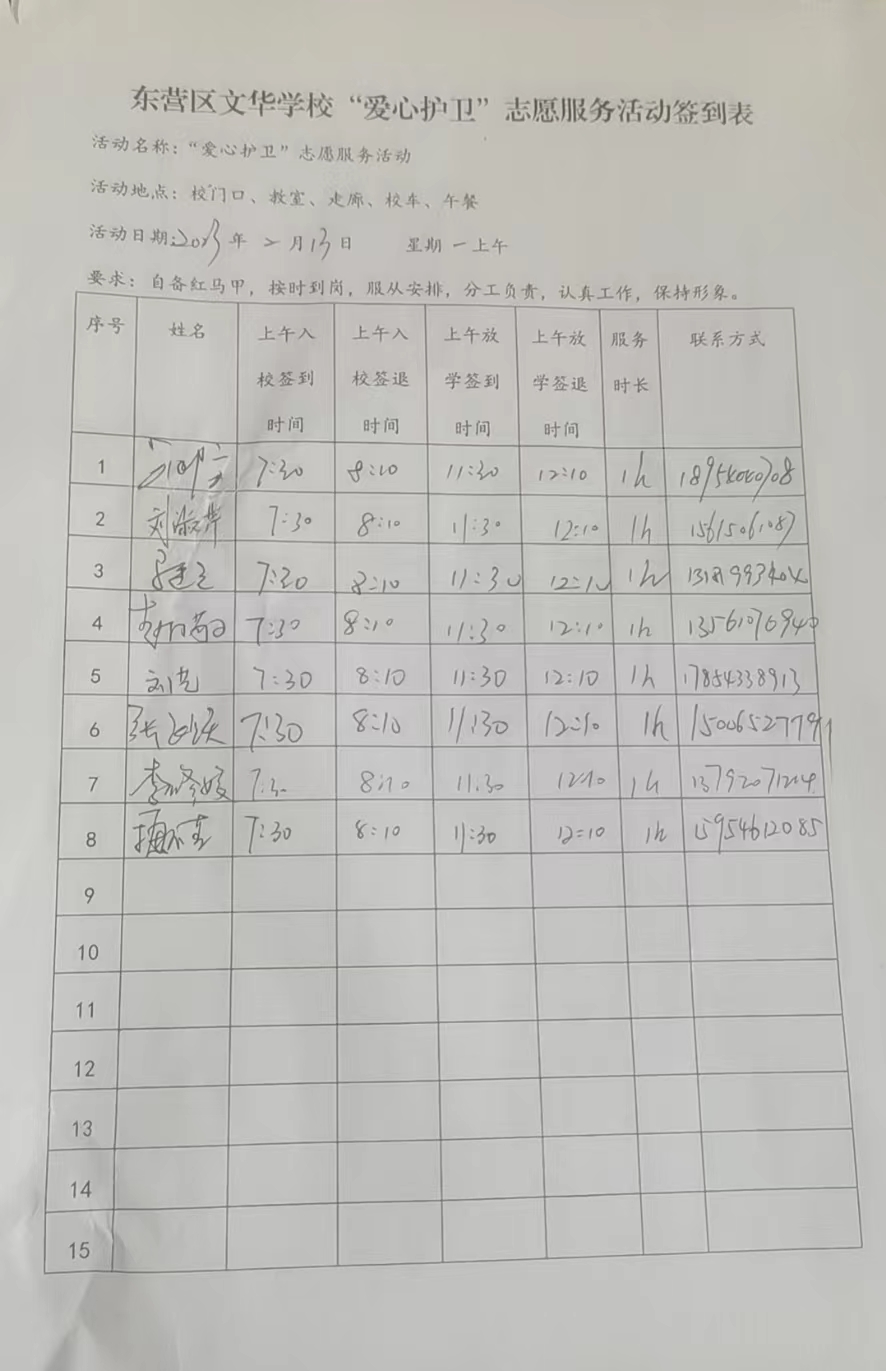 东营区文华学校“爱心护卫”志愿服务活动签到表
活动名称：“爱心护卫”志愿服务活动
活动地点：校门口、教室、走廊、校车、午餐
活动日期:2023年 2月13日 星期一上午
要求：自备红马甲，按时到岗，服从安排，分工负责，认真工作，保持形象。
序号 姓名 上午入校签到时间 上午入校签退时间 上午放学签到时间 上午放学签退时间 服务时长 联系方式
1 7:30 8:10 11:30 12:10 1h
2 刘淑萍 7:30 8:10 11:30 12:10 1h 15615061087
3 7:30 8:10 11:30 12:10 1h 13181993404
4 7:30 8:10 11:30 12:10 1h 13561076940
5 刘芸 7:30 8:10 11:30 12:10 1h 17854338913
6 7:30 8:10 11:30 12:10 1h 15006527791
7 7:30 8:10 11:30 12:10 1h 13792071204
8 7:30 8:10 11:30 12:10 1h 15954612085
9
10
11
12
13
14
15